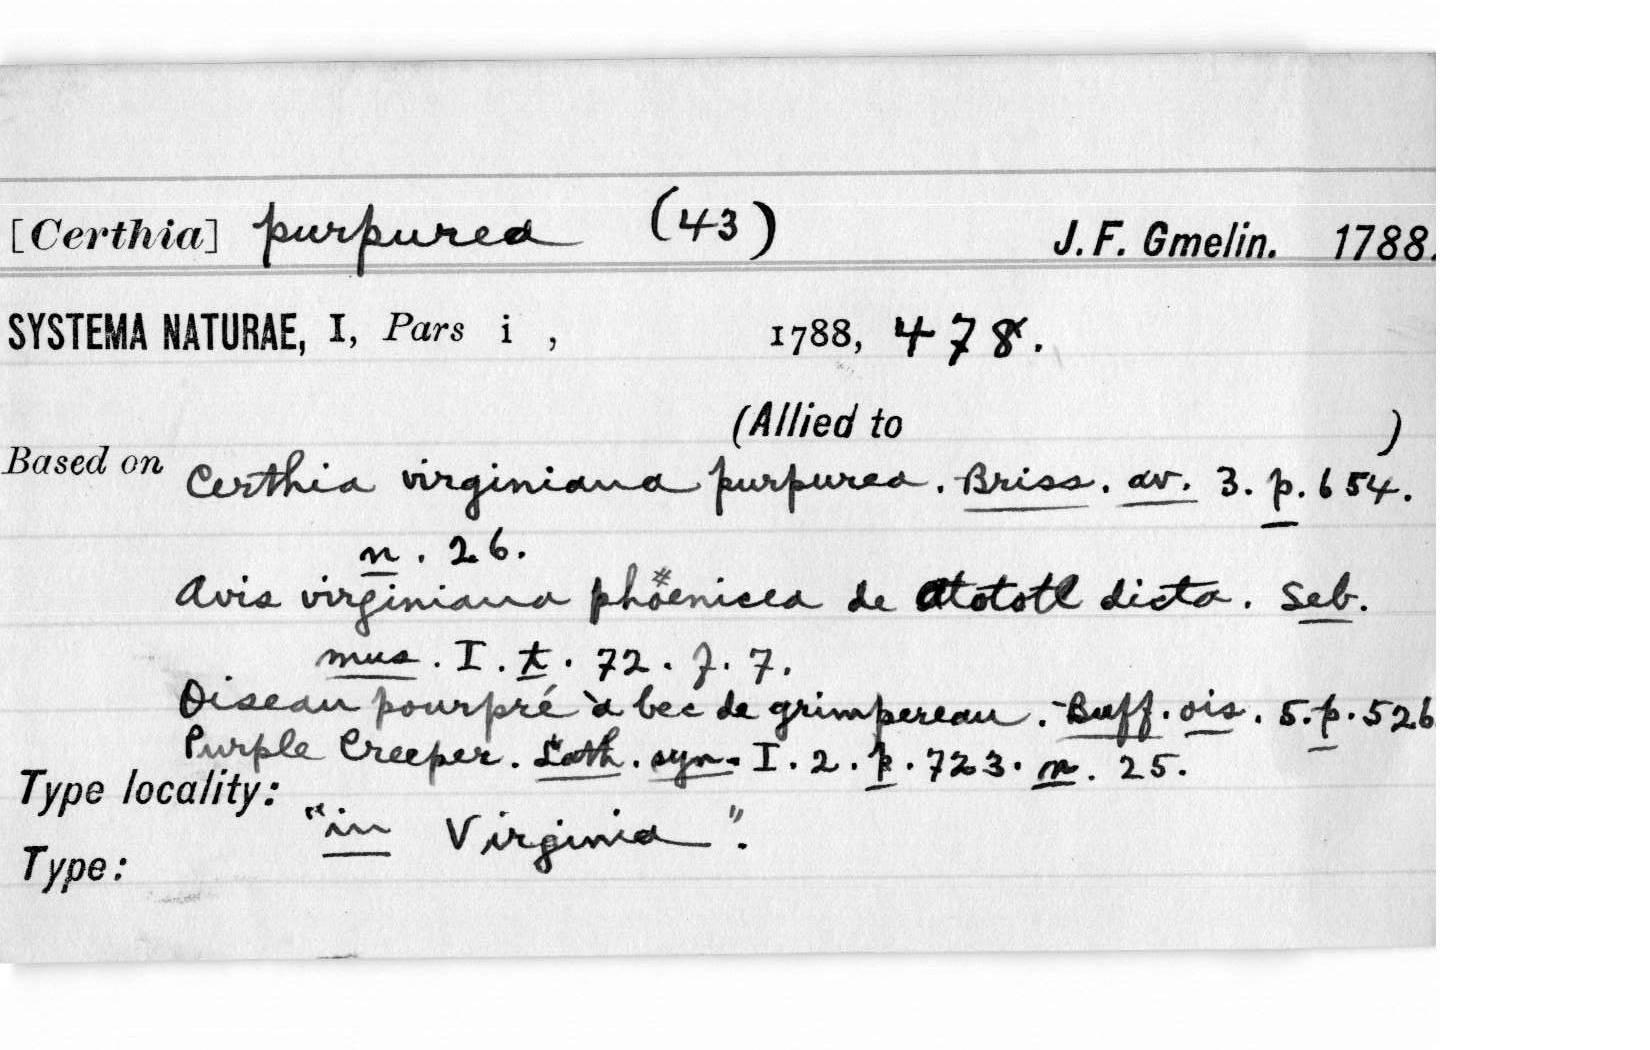 [Certhia] purpurea (43) J. F. Gmelin. 1788.
SYSTEMA NATURAE, I, Pars i , 1788, 478.
(Allied to )
Based on Certhia virginiana purpurea. Briss. av. 3. p. 654.
n. 26.
Avis virginiana phöenicea de Atototl dicta. Seb.
mus. I. t. 72. f. 7.
Oiseau pourpré à bec de grimpereau. Buff. ois. 5. p. 526
Purple Creeper. Lath. syn. I. 2. p. 723. n. 25.
Type locality: "in Virginia".
Type: